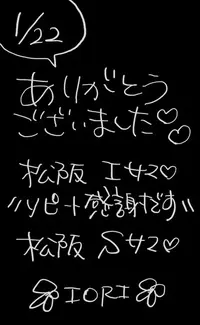 1/22
ありがとう
ございました♡♡
松阪 Iサマ♡
"リピート感謝です"
松阪 Sサマ♡
IORI